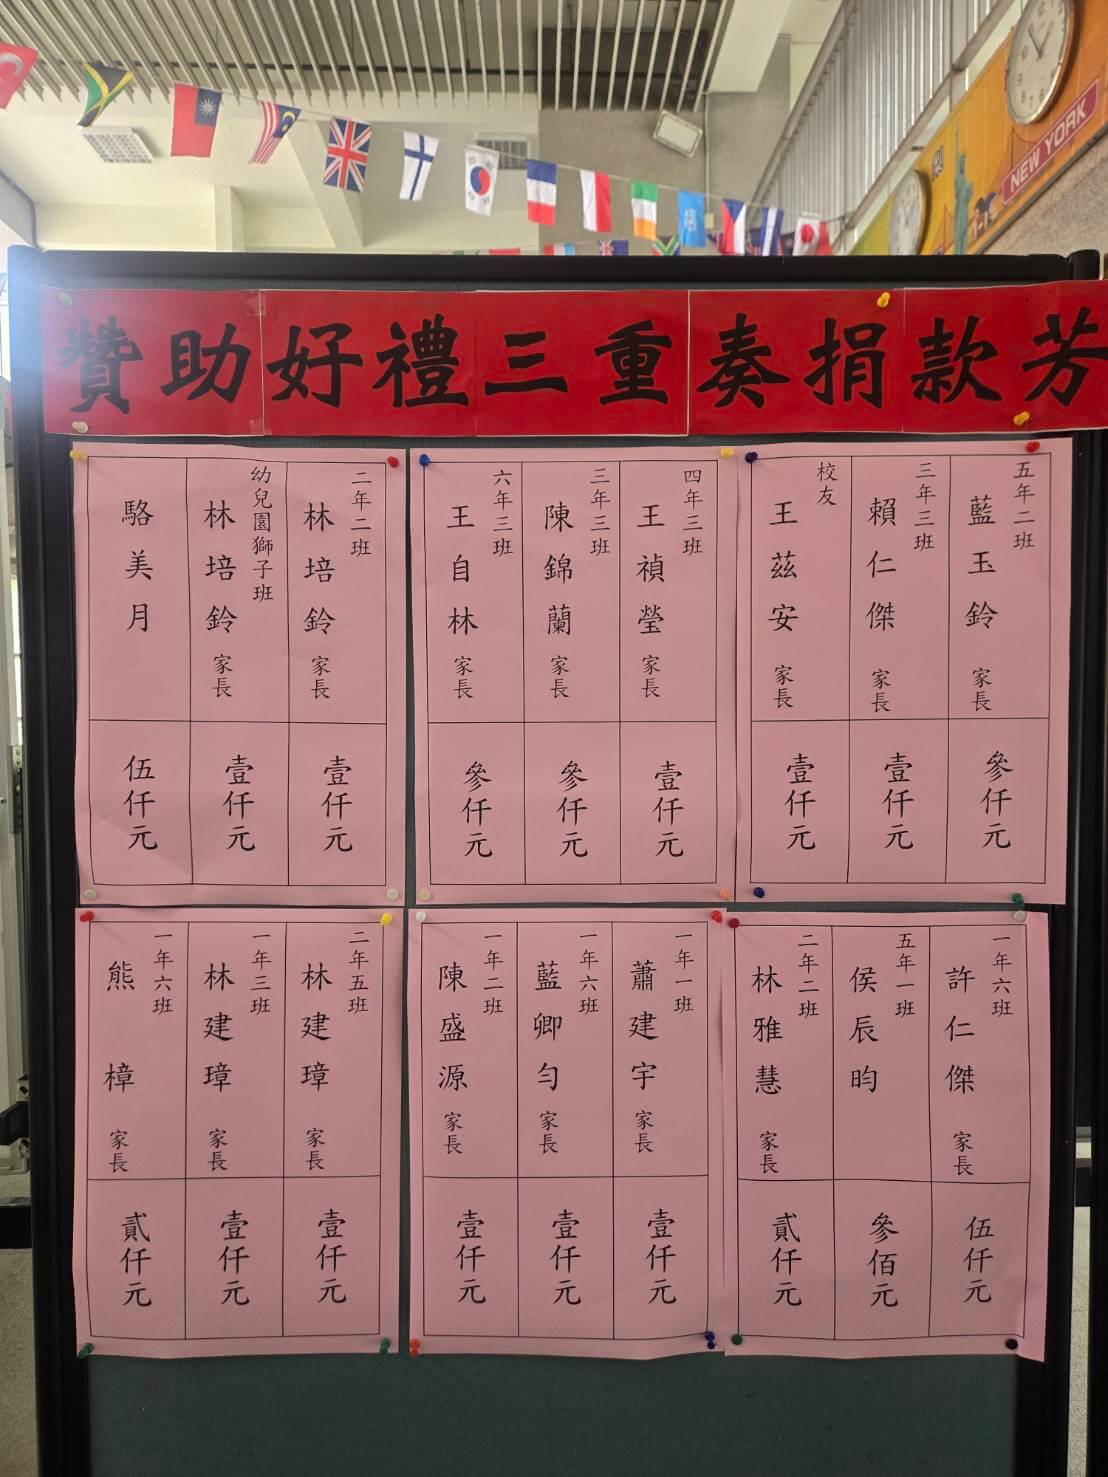 NEW YORK
贊助好禮三重奏捐款芳
五年二班
藍玉鈴 家長
參仟元
三年三班
賴仁傑 家長
壹仟元
校友
王茲安 家長
壹仟元
四年三班
王禎瑩 家長
壹仟元
三年三班
陳錦蘭 家長
參仟元
六年三班
王自林 家長
參仟元
二年二班
林培鈴 家長
壹仟元
幼兒園獅子班
林培鈴 家長
壹仟元
駱美月
伍仟元
一年六班
許仁傑 家長
伍仟元
五年一班
侯辰昀
參佰元
二年二班
林雅慧 家長
貳仟元
一年一班
蕭建宇 家長
壹仟元
一年六班
藍卿勻 家長
壹仟元
一年二班
陳盛源 家長
壹仟元
二年五班
林建璋 家長
壹仟元
一年三班
林建璋 家長
壹仟元
一年六班
熊樟 家長
貳仟元